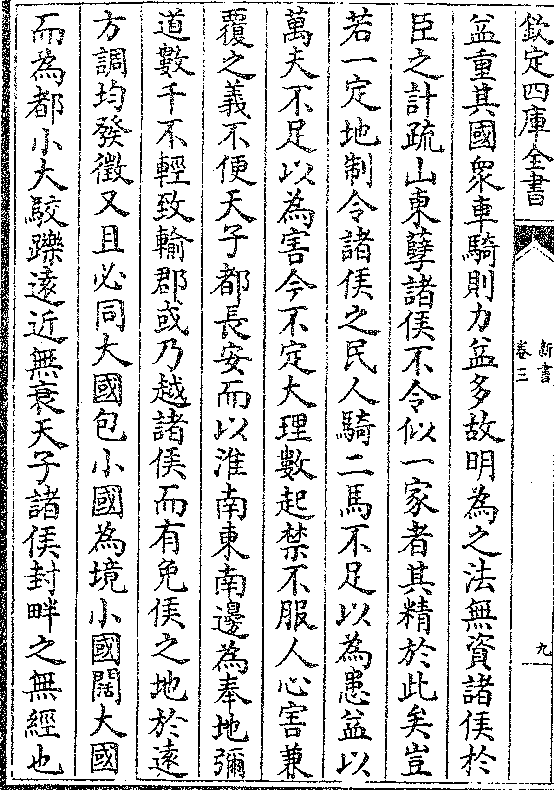 欽定四庫全書
新書
卷三
九
益重其國衆車騎則力益多故明為之法無資諸侯於
臣之計疏山東孽諸侯不令似一家者其精於此矣豈
若一定地制令諸侯之民人騎二馬不足以為患益以
萬夫不足以為害今不定大理數起禁不服人心害兼
覆之義不便天子都長安而以淮南東南邊為奉地彌
道數千不輕致輸郡或乃越諸侯而有免侯之地於遠
方調均發徵又且必同大國包小國為境小國闊大國
而為都小大駮躒遠近無衰天子諸侯封畔之無經也